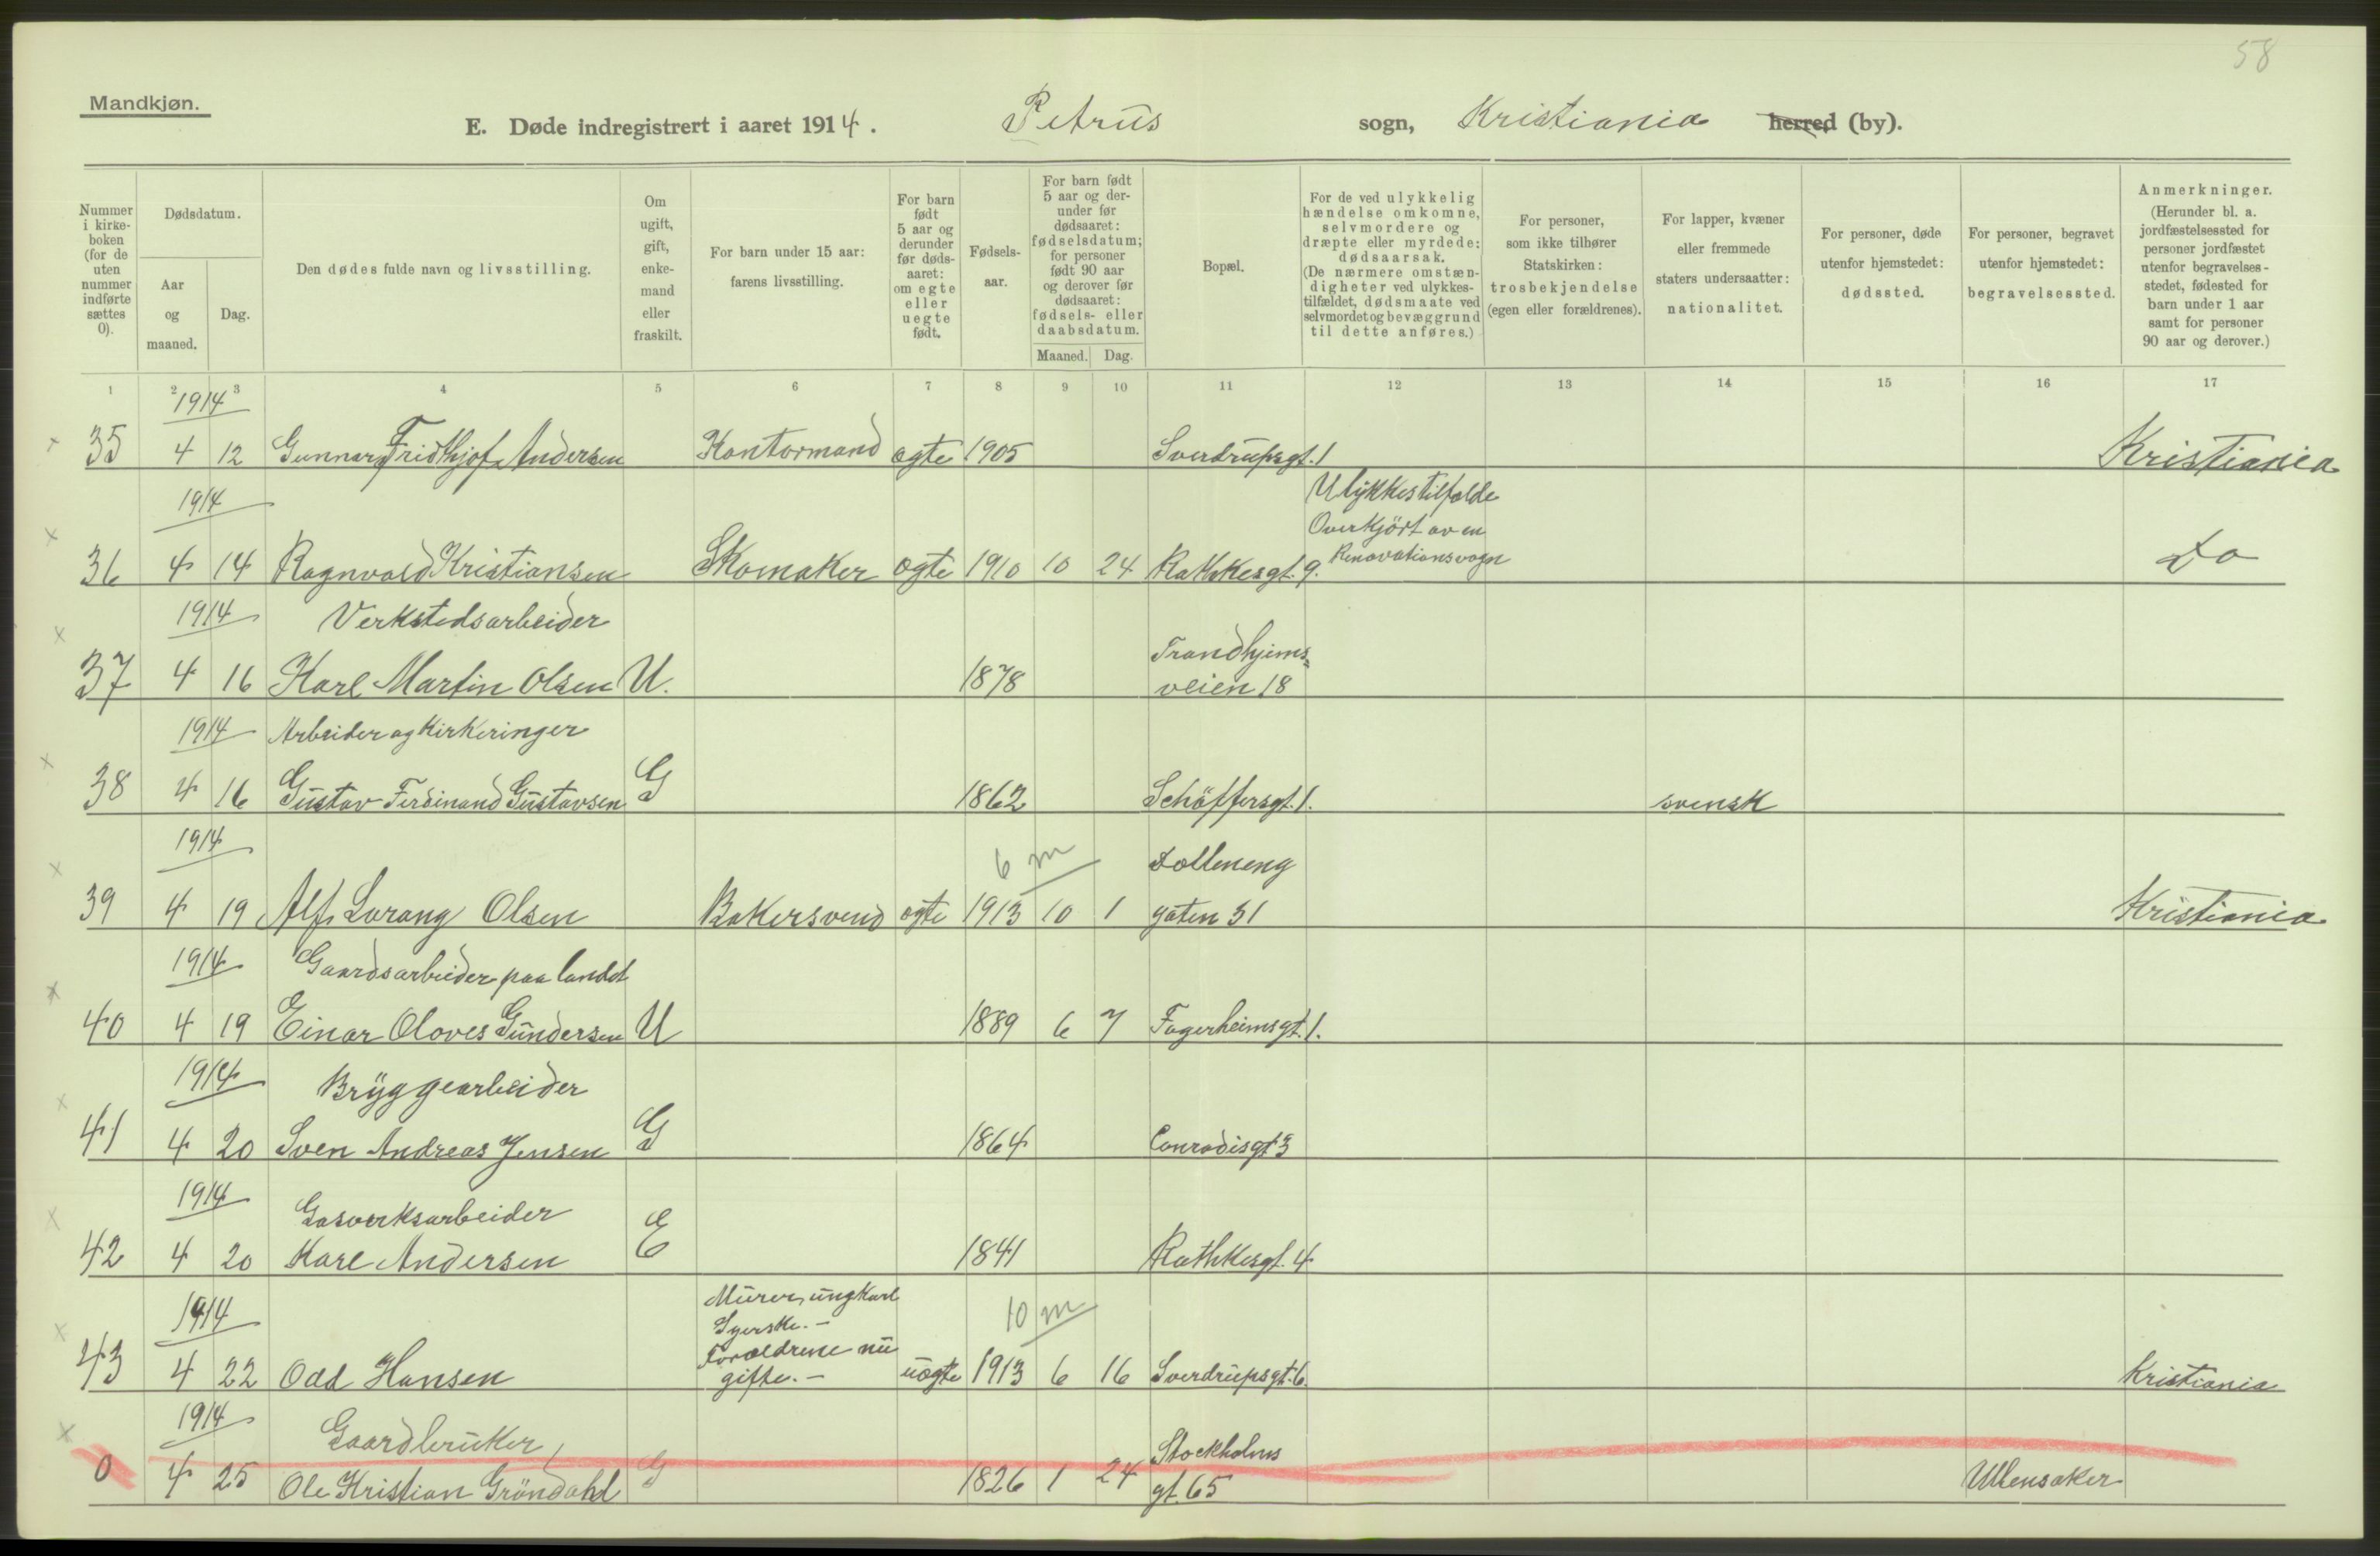 58
Mandkjøn.
E. Døde indregistrert i aaret 1914. Petrus sogn, Kristiania herred (by).
Nummer i kirke-boken (for de uten nummer indførte sættes 0).
Dødsdatum.
Aar og maaned.
Dag.
Den dødes fulde navn og livsstilling.
Om ugift, gift, enke-mand eller fraskilt.
For barn under 15 aar: farens livsstilling.
For barn født 5 aar og derunder før døds-aaret: om egte eller uegte født.
Fødsels-aar.
For barn født 5 aar og der-under før dødsaaret: fødselsdatum; for personer født 90 aar og derover før dødsaaret: fødsels- eller daabsdatum.
Maaned. Dag.
Bopæl.
For de ved ulykkelig hændelse omkomne, selvmordere og dræpte eller myrdede: dødsaarsak. (De nærmere omstæn-digheter ved ulykkes-tilfældet, dødsmaate ved selvmordet og bevæggrund til dette anføres.)
For personer, som ikke tilhører Statskirken: trosbekjendelse (egen eller forældrenes).
For lapper, kvæner eller fremmede staters undersaatter: nationalitet.
For personer, døde utenfor hjemstedet: dødssted.
For personer, begravet utenfor hjemstedet: begravelsessted.
Anmerkninger. (Herunder bl. a. jordfæstelsessted for personer jordfæstet utenfor begravelses-stedet, fødested for barn under 1 aar samt for personer 90 aar og derover.)
1 2 3 4 5 6 7 8 9 10 11 12 13 14 15 16 17
1914
35 4 12 Gunnar Fridthjof Andersen Kontormand ogte 1905 Sverdrupsgt. 1 Kristiania
1914 Ulykkestilfælde
Overkjört av en
36 4 14 Ragnvald Kristiansen Skomaker ogte 1910 10 24 Rathkesgt. 9. Renovationsvogn Do
1914 Verkstedsarbeider
Trondhjems-
37 4 16 Karl Martin Olsen U. 1878 veien 18
1914 Arbeider og Kirkeringer
38 4 16 Gustav Ferdinand Gustavsen G 1862 Schöffersgt. 1. svensk
1914 6 m Dolleneng
39 4 19 Alf Lorang Olsen Bakersvend ogte 1913 10 1 gaten 31 Kristiania
1914 Gaardsarbeider paa landet
40 4 19 Einar Oloves Gundersen U 1889 6 7 Fagerheimsgt. 1.
1914 Bryggearbeider
41 4 20 Sven Andreas Jensen G 1864 Conradisgt 3
1914 Gasverksarbeider
42 4 20 Karl Andersen E 1841 Rathkesgt. 4
1914 Murer, ungkarl 10 m
Syerske. -
Forældrene nu
43 4 22 Odd Hansen gifte. - uogte 1913 6 16 Sverdrupsgt. 6. Kristiania
1914 Gaardbruker, Stockholms
0 4 25 Ole Kristian Gröndahl G 1826 1 24 gt. 65 Ullensaker